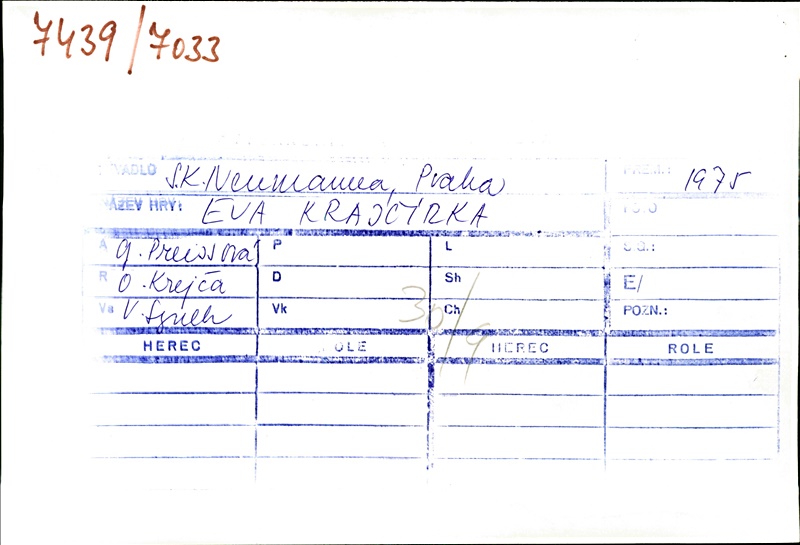 7439/7033
DIVADLO S.K. Neumanna, Praha PREM.: 1975
NÁZEV HRY: EVA KRAJČÍRKA FOTO
A G. Preissová P L SIG.:
R O. Krejča D Sh E/
Vs V. Synek Vk Ch POZN.:
30/9
HEREC ROLE HEREC ROLE